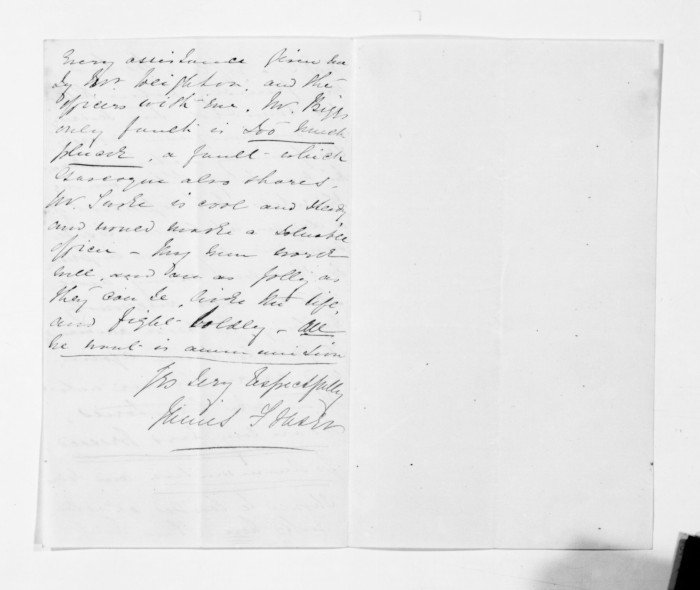 Every assistance given me
by Mr Leighton, and the
officers with me. Mr. Biggs
only fault is too much
pluck, a fault which
Gascoyne also shares.
Mr. Tuke is cool and steady
and would make a valuable
officer – My men work
well, and are as jolly as
they can be, like the life,
and fight boldly – All
we want is ammunition
Yrs Very Respectfully
James Fraser